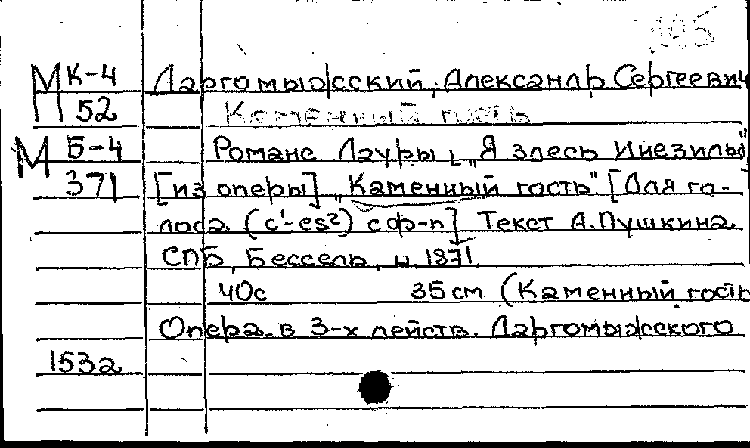 МК-4 Даргомыжский, Александр Сергеевич
П 52 Каменный гость
М Б-4 Романс Лауры „Я здесь Инезилья"
371 [из оперы] „Каменный гость" [Для го-
лоса (c¹-es²) с ф-п] Текст А. Пушкина.
СПБ, Бессель, ц. 1871
40с 35 см (Каменный гость
Опера в 3-х действ. Даргомыжского
1532